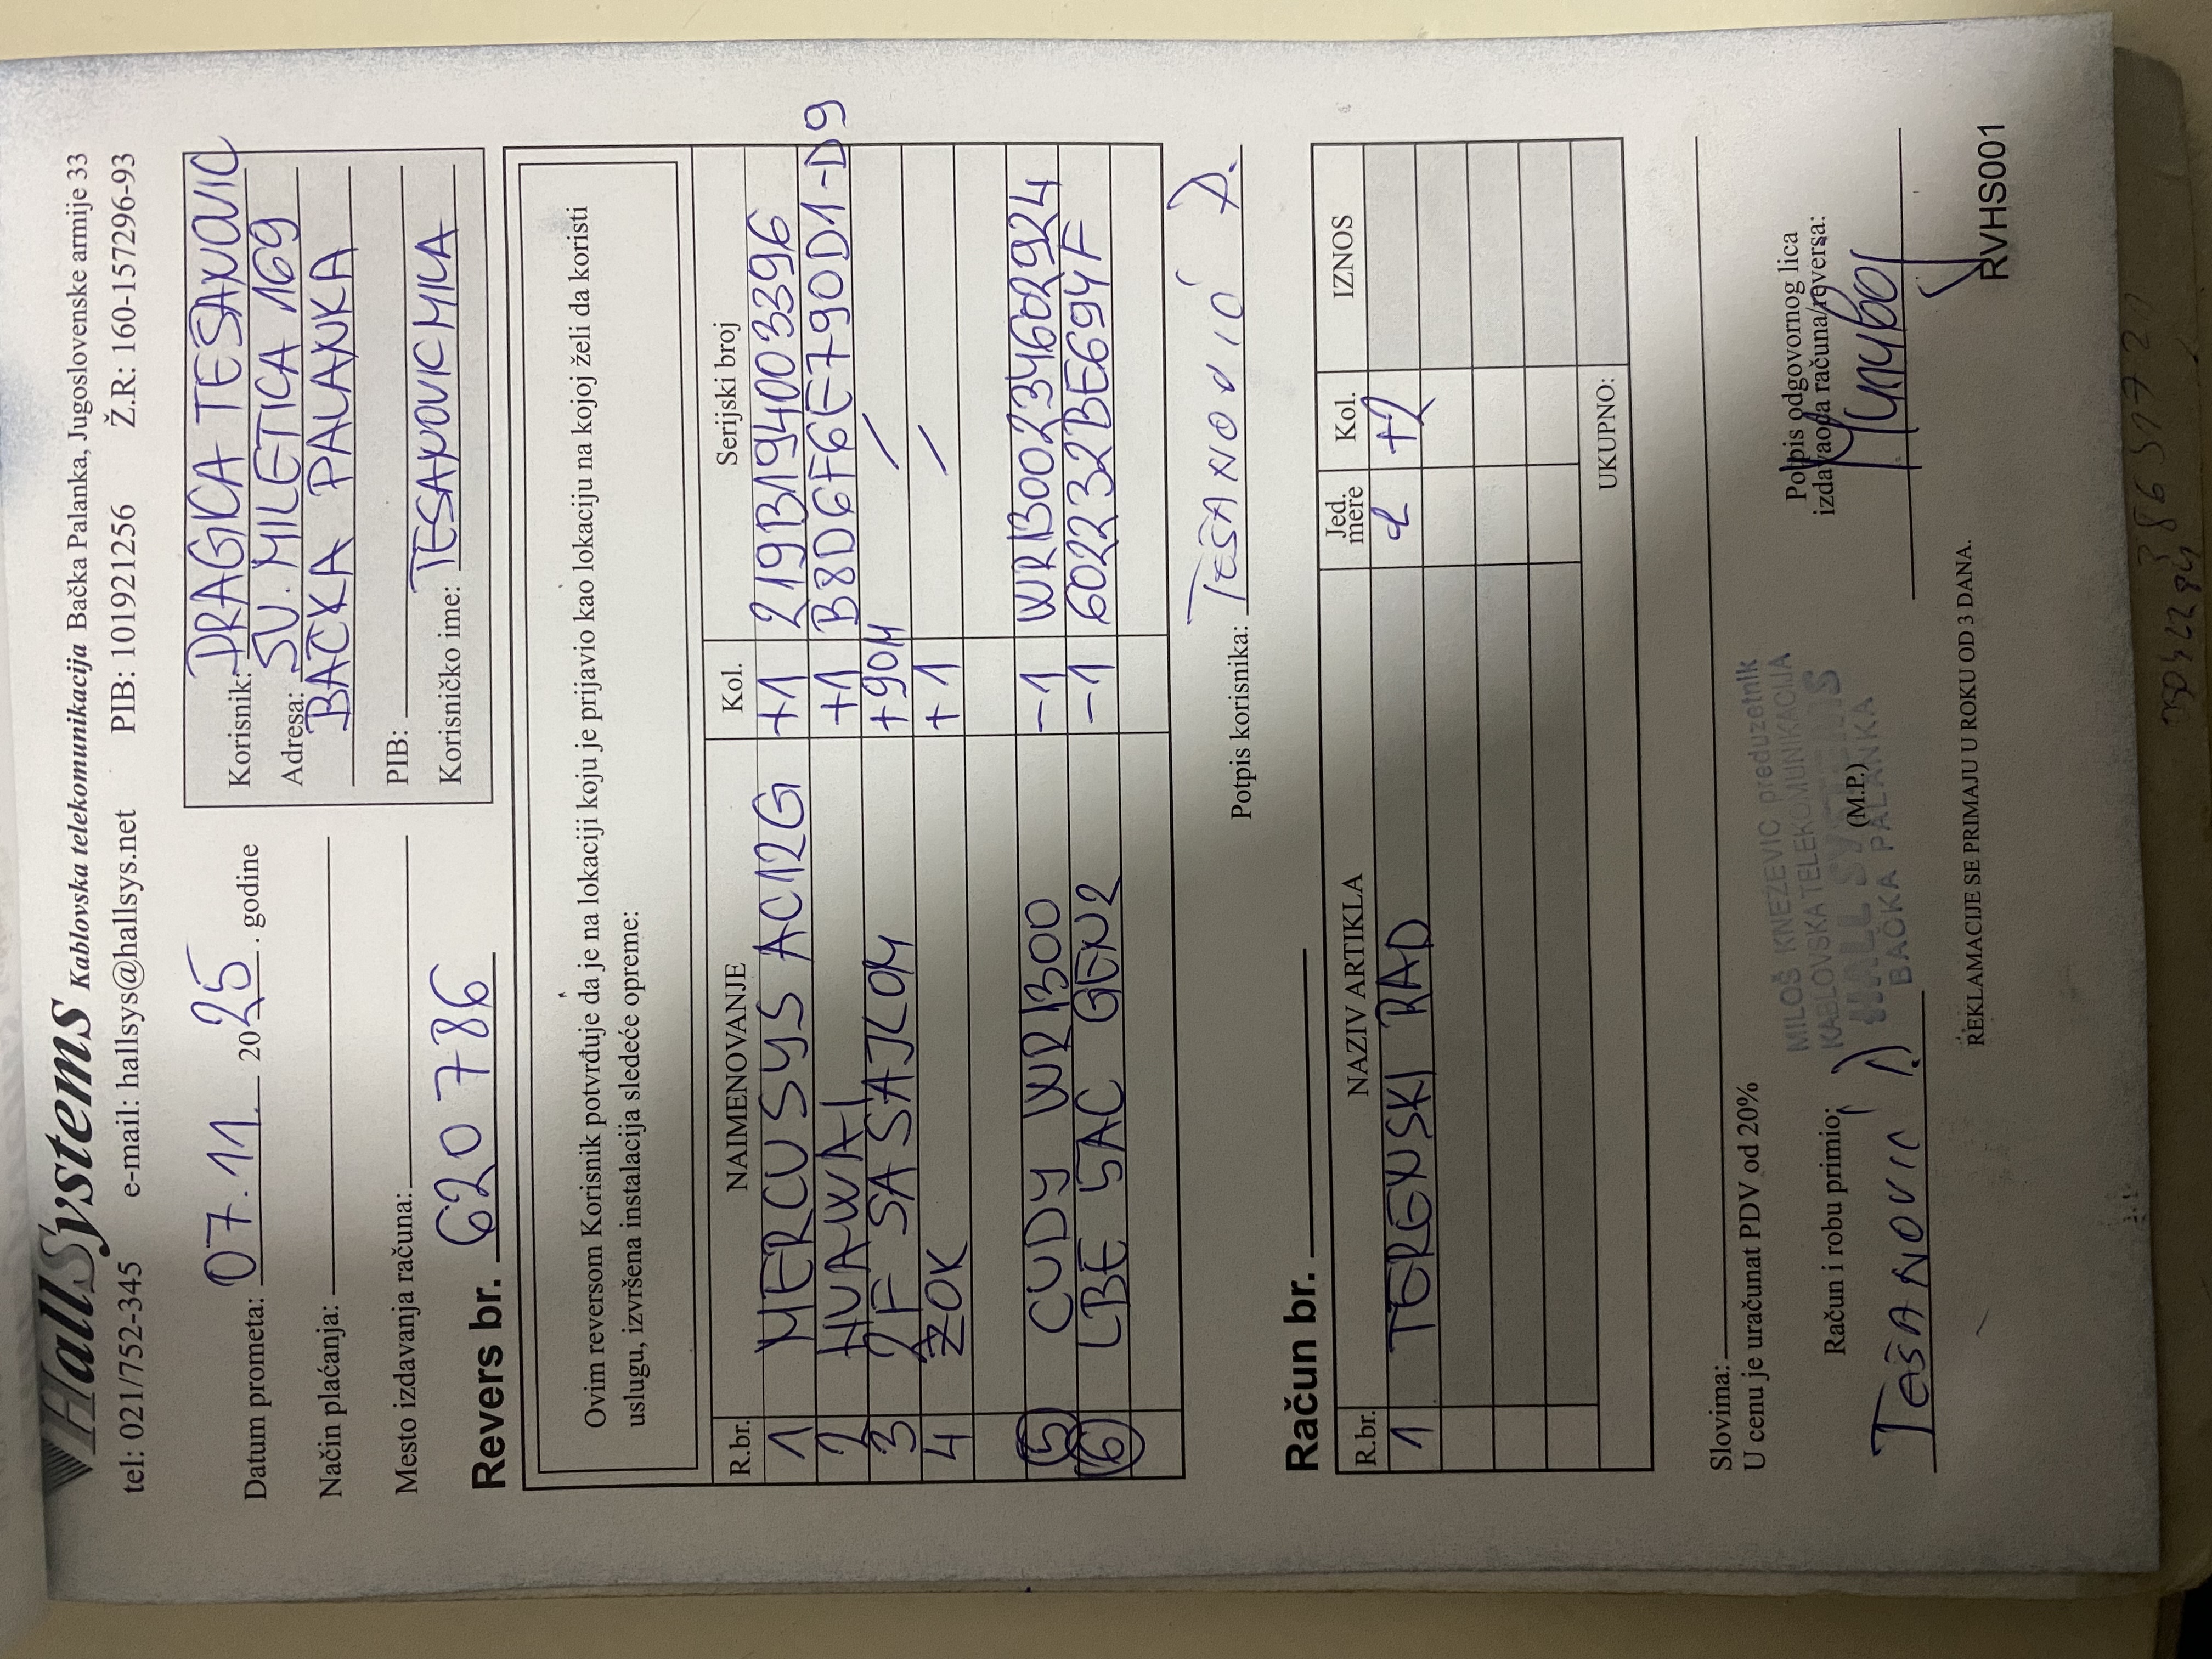 HallSystems Kablovska telekomunikacija Bačka Palanka, Jugoslovenske armije 33
tel: 021/752-345 e-mail: hallsys@hallsys.net PIB: 101921256 Ž.R: 160-157296-93
Datum prometa: 07.11. 2025. godine
Način plaćanja:
Mesto izdavanja računa:
Korisnik: DRAGICA TESANOVIC
Adresa: SV. MILETICA 169
BACKA PALANKA
PIB:
Korisničko ime: TESANOVICMILA
Revers br. 620786
Ovim reversom Korisnik potvrđuje da je na lokaciji koju je prijavio kao lokaciju na kojoj želi da koristi
uslugu, izvršena instalacija sledeće opreme:
R.br. NAIMENOVANJE Kol. Serijski broj
1 MERCUSYS AC12G +1 219B194003396
2 HUAWAI +1 B8D6F6E790D1-D9
3 2F SA SAJLOM +90M /
4 ZOK +1 /
5 CUDY WR1300 -1 WR1300234602924
6 LBE 5AC GEN2 -1 602232BE694F
Potpis korisnika: TEŠANOVIĆ D.
Račun br.
R.br. NAZIV ARTIKLA Jed. mere Kol. IZNOS
1 TERENSKI RAD +2
UKUPNO:
Slovima:
U cenu je uračunat PDV od 20%
Račun i robu primio: TEŠANOVIĆ D.
MILOŠ KNEZEVIC preduzetnik
KABLOVSKA TELEKOMUNIKACIJA
HALL SYSTEMS
BAČKA PALANKA
(M.P.)
Potpis odgovornog lica
izdavaoca računa/reversa:
REKLAMACIJE SE PRIMAJU U ROKU OD 3 DANA.
RVHS001